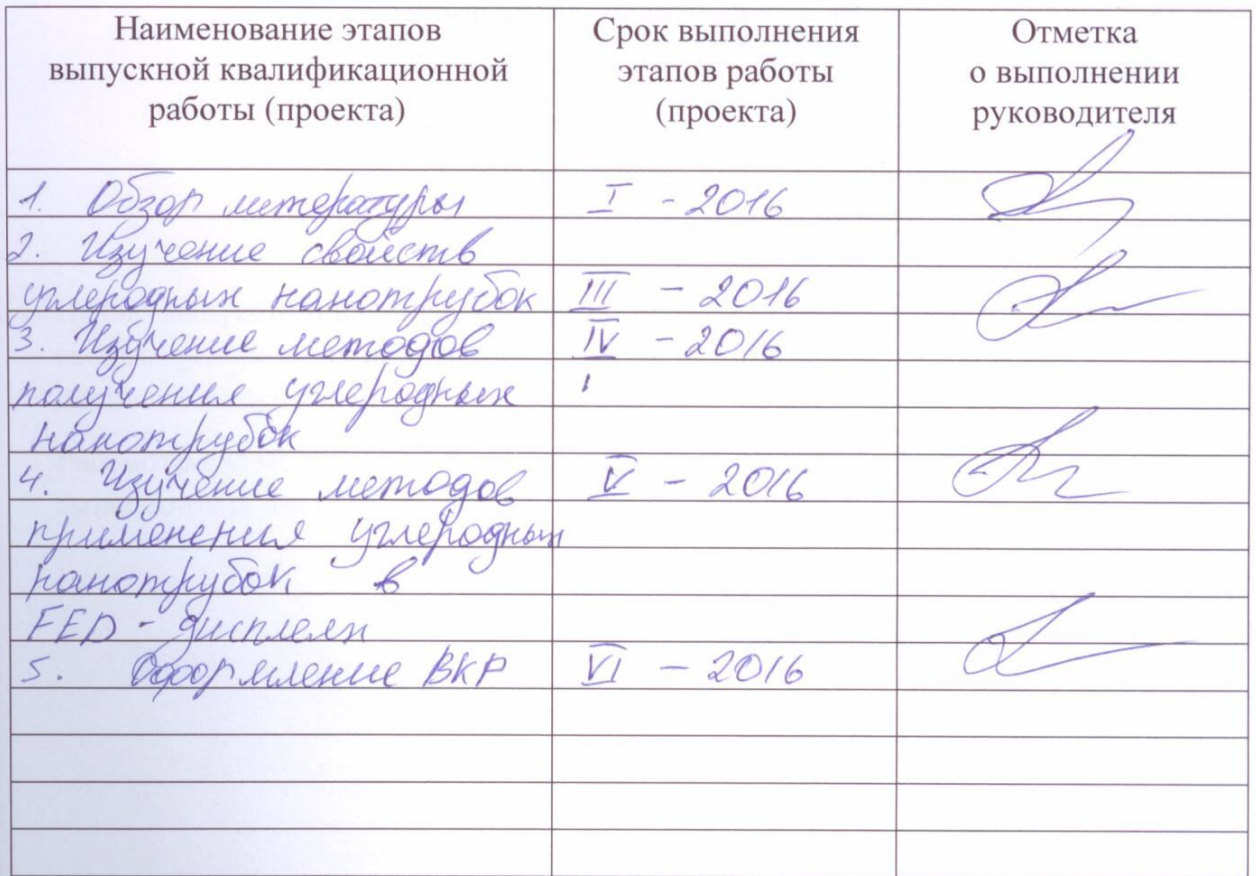 Наименование этапов
выпускной квалификационной
работы (проекта)
Срок выполнения
этапов работы
(проекта)
Отметка
о выполнении
руководителя
1. Обзор литературы I - 2016
2. Изучение свойств
углеродных нанотрубок III - 2016
3. Изучение методов IV - 2016
получения углеродных
нанотрубок
4. Изучение методов V - 2016
применения углеродных
нанотрубок в
FED - дисплеях
5. Оформление ВКР VI - 2016